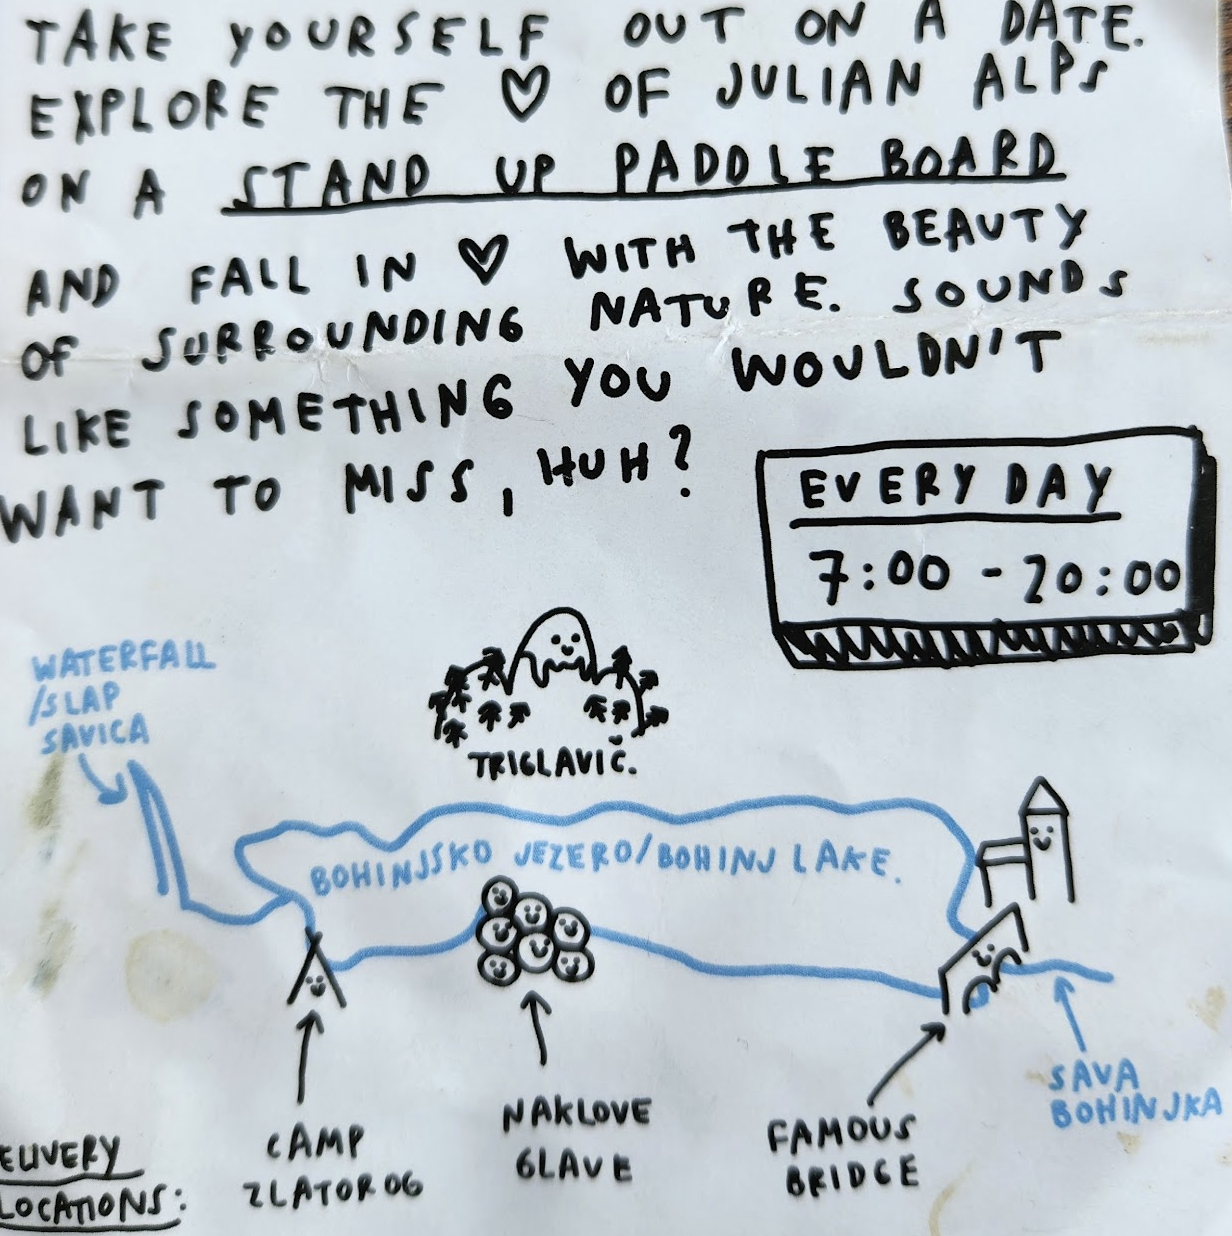 TAKE YOURSELF OUT ON A DATE.
EXPLORE THE ♡ OF JULIAN ALPS
ON A STAND UP PADDLE BOARD
AND FALL IN ♡ WITH THE BEAUTY
OF SURROUNDING NATURE. SOUNDS
LIKE SOMETHING YOU WOULDN'T
WANT TO MISS, HUH?
EVERY DAY
7:00 - 20:00
WATERFALL
/SLAP
SAVICA
TRIGLAVIČ.
BOHINJSKO JEZERO/BOHINJ LAKE.
SAVA
BOHINJKA
NAKLOVE
GLAVE
FAMOUS
BRIDGE
CAMP
ZLATOROG
ELIVERY
LOCATIONS: